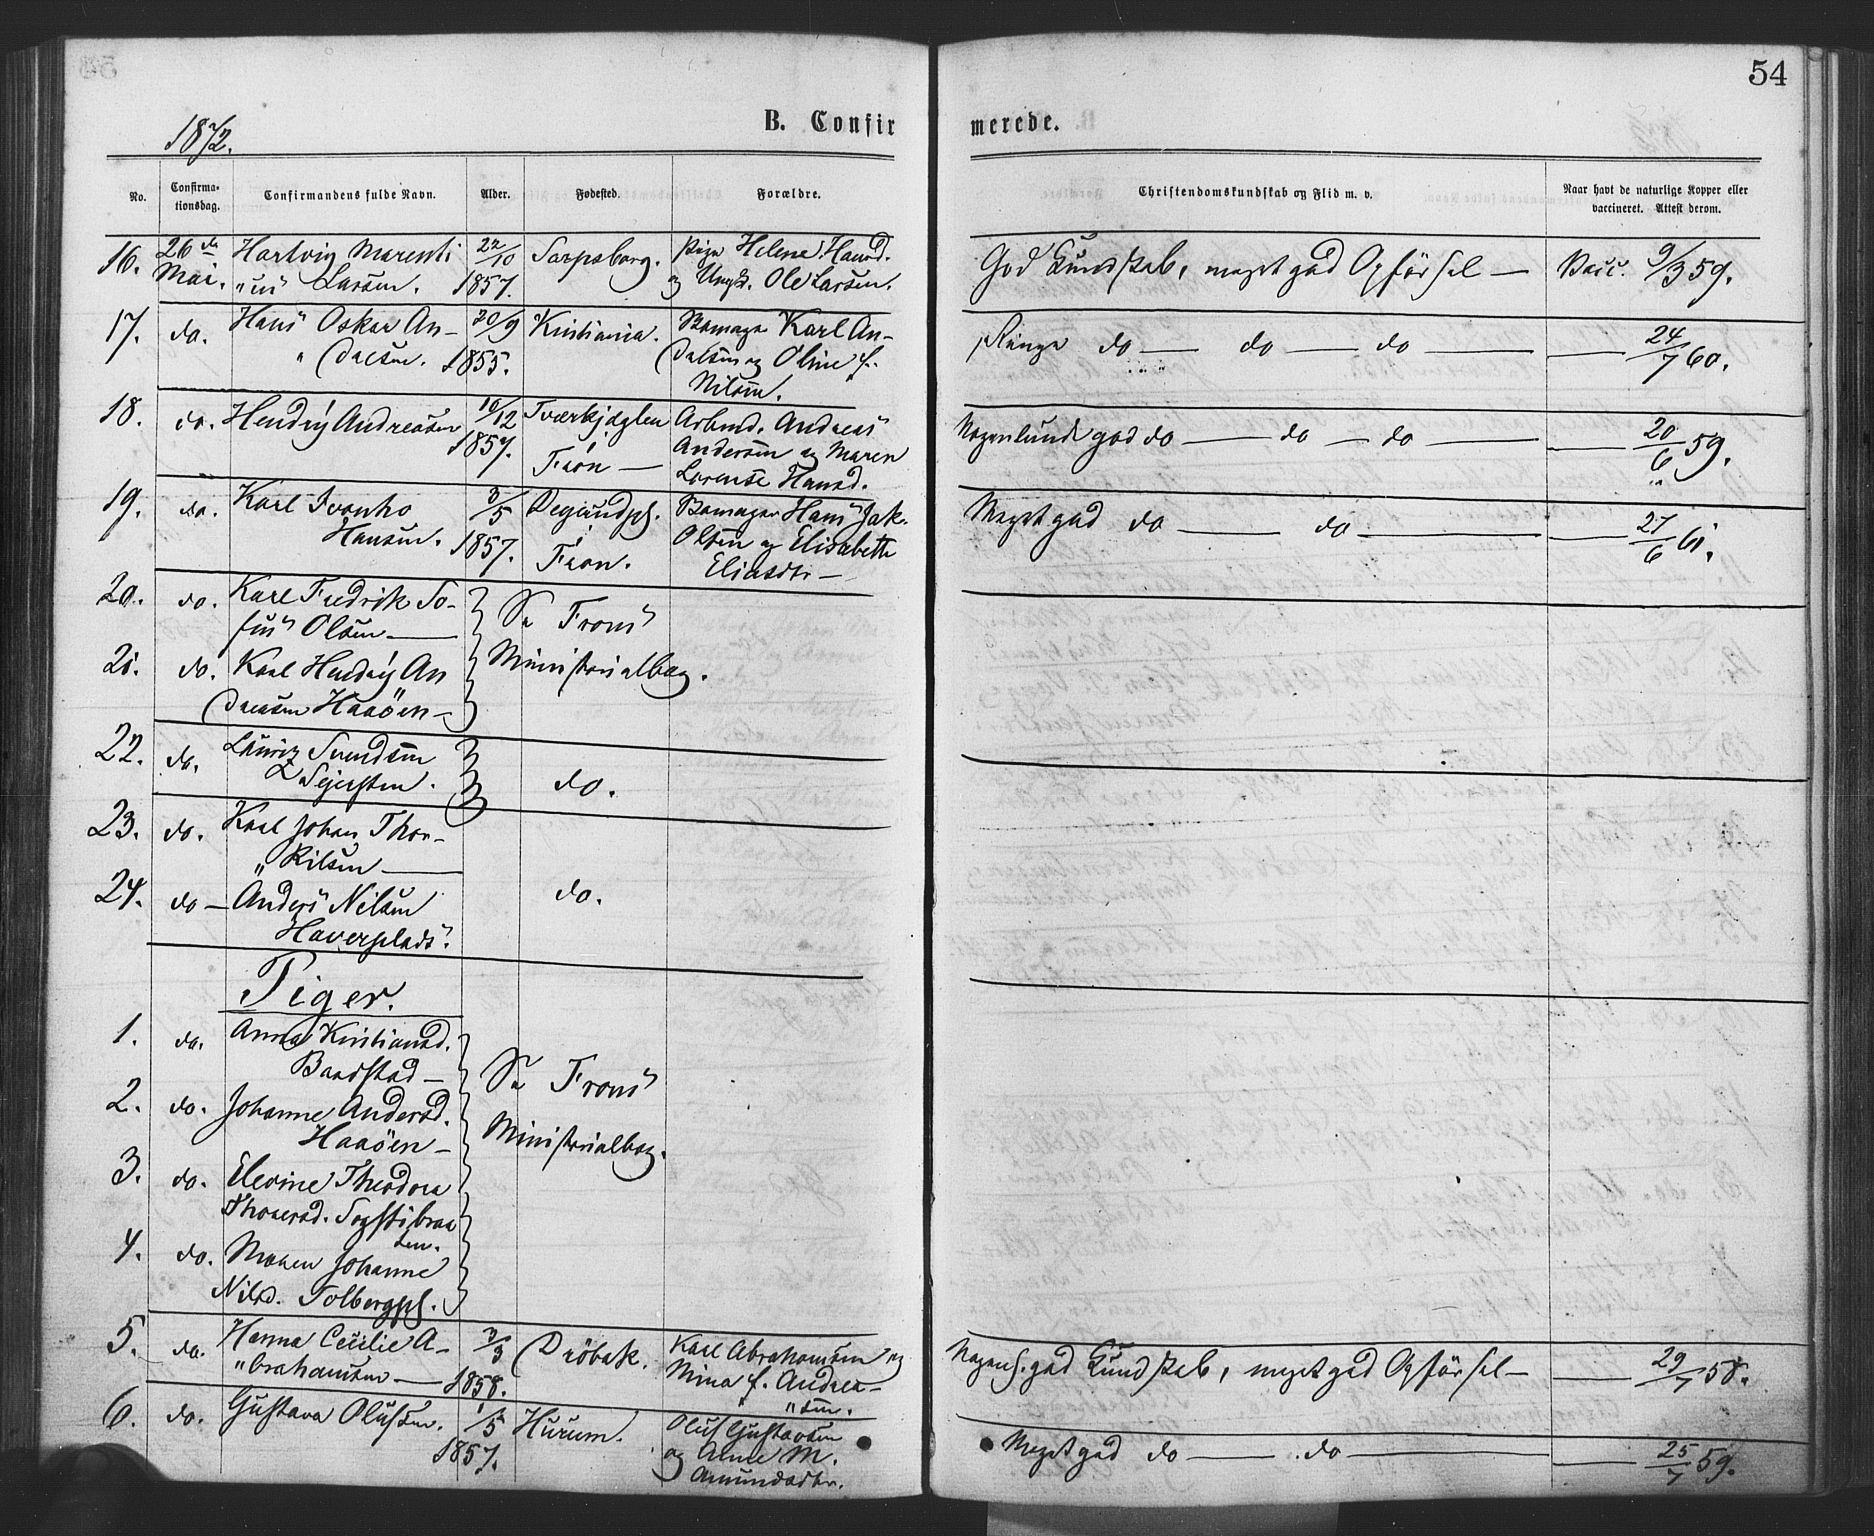 54
1872.
B. Confirmerede.
No. Confirmationsdag. Confirmandens fulde Navn. Alder. Fødested. Forældre. Christendomskundskab og Flid m. v. Naar havt de naturlige Kopper eller vaccineret. Attest derom.
16. 26de Hartvig Marenti 22/10 Sarpsborg. Pige Helene Hansd. God Kundskab, meget god Opførsel — Vacc. 9/3 59.
Mai. "us Larsen. 1857. og Ungk. Ole Larsen.
17. do. Hans Oskar An- 20/9 Kristiania. Bomager Karl An- Ringe do — do — do — — 24/7 60.
" dresen. 1855. dresen og Oline f.
Nilsen.
18. do. Hendrik Andreasen 10/12 Tværkjæglen Arbmd. Andreas Nogenlunde god do — do — do — — 20/6 59.
1857. Fron — Andersen og Maren
Lorense Hansd.
19. do. Karl Ivanho 3/5 Degerudpl. Bomager Hans Jak. Meget god do — do — — 27/6 61.
Hansen. 1857. Fron. Olsen og Elisabeth
Eliasdtr —
20. do. Karl Fredrik So- Se Frons
fus Olsen —
21. do. Karl Hendrik An Ministerialbog.
dreasen Haaøen —
22. do. Lauritz Svendsen
Sejersten. do.
23. do. Karl Johan Thor-
" kilsen —
24. do — Anders Nilsen do.
Haverplads.
Piger.
1. do. Anna Kristiansd. Se Frons
Baadstad —
2. do. Johanne Andersd. Ministerialbog.
Haaøen —
3. do. Elevine Theodora
Thoresd. Sogstibraa
ten.
4. do. Maren Johanne
Nilsd. Tolbergpl.
5. do. Hanna Cecilie A- 3/3 Drøbak. Karl Abrahamsen og Nogenl. god Kundskab, meget god Opførsel — — 29/7 58.
" brahamsen — 1858. Mina f. Andrea-
" sen.
6. do. Gustava Olufsen. 1/5 Hurum. Oluf Gustavsen Meget god do — do — — 25/7 59.
1857. og Anne M.
Amundsdtr.